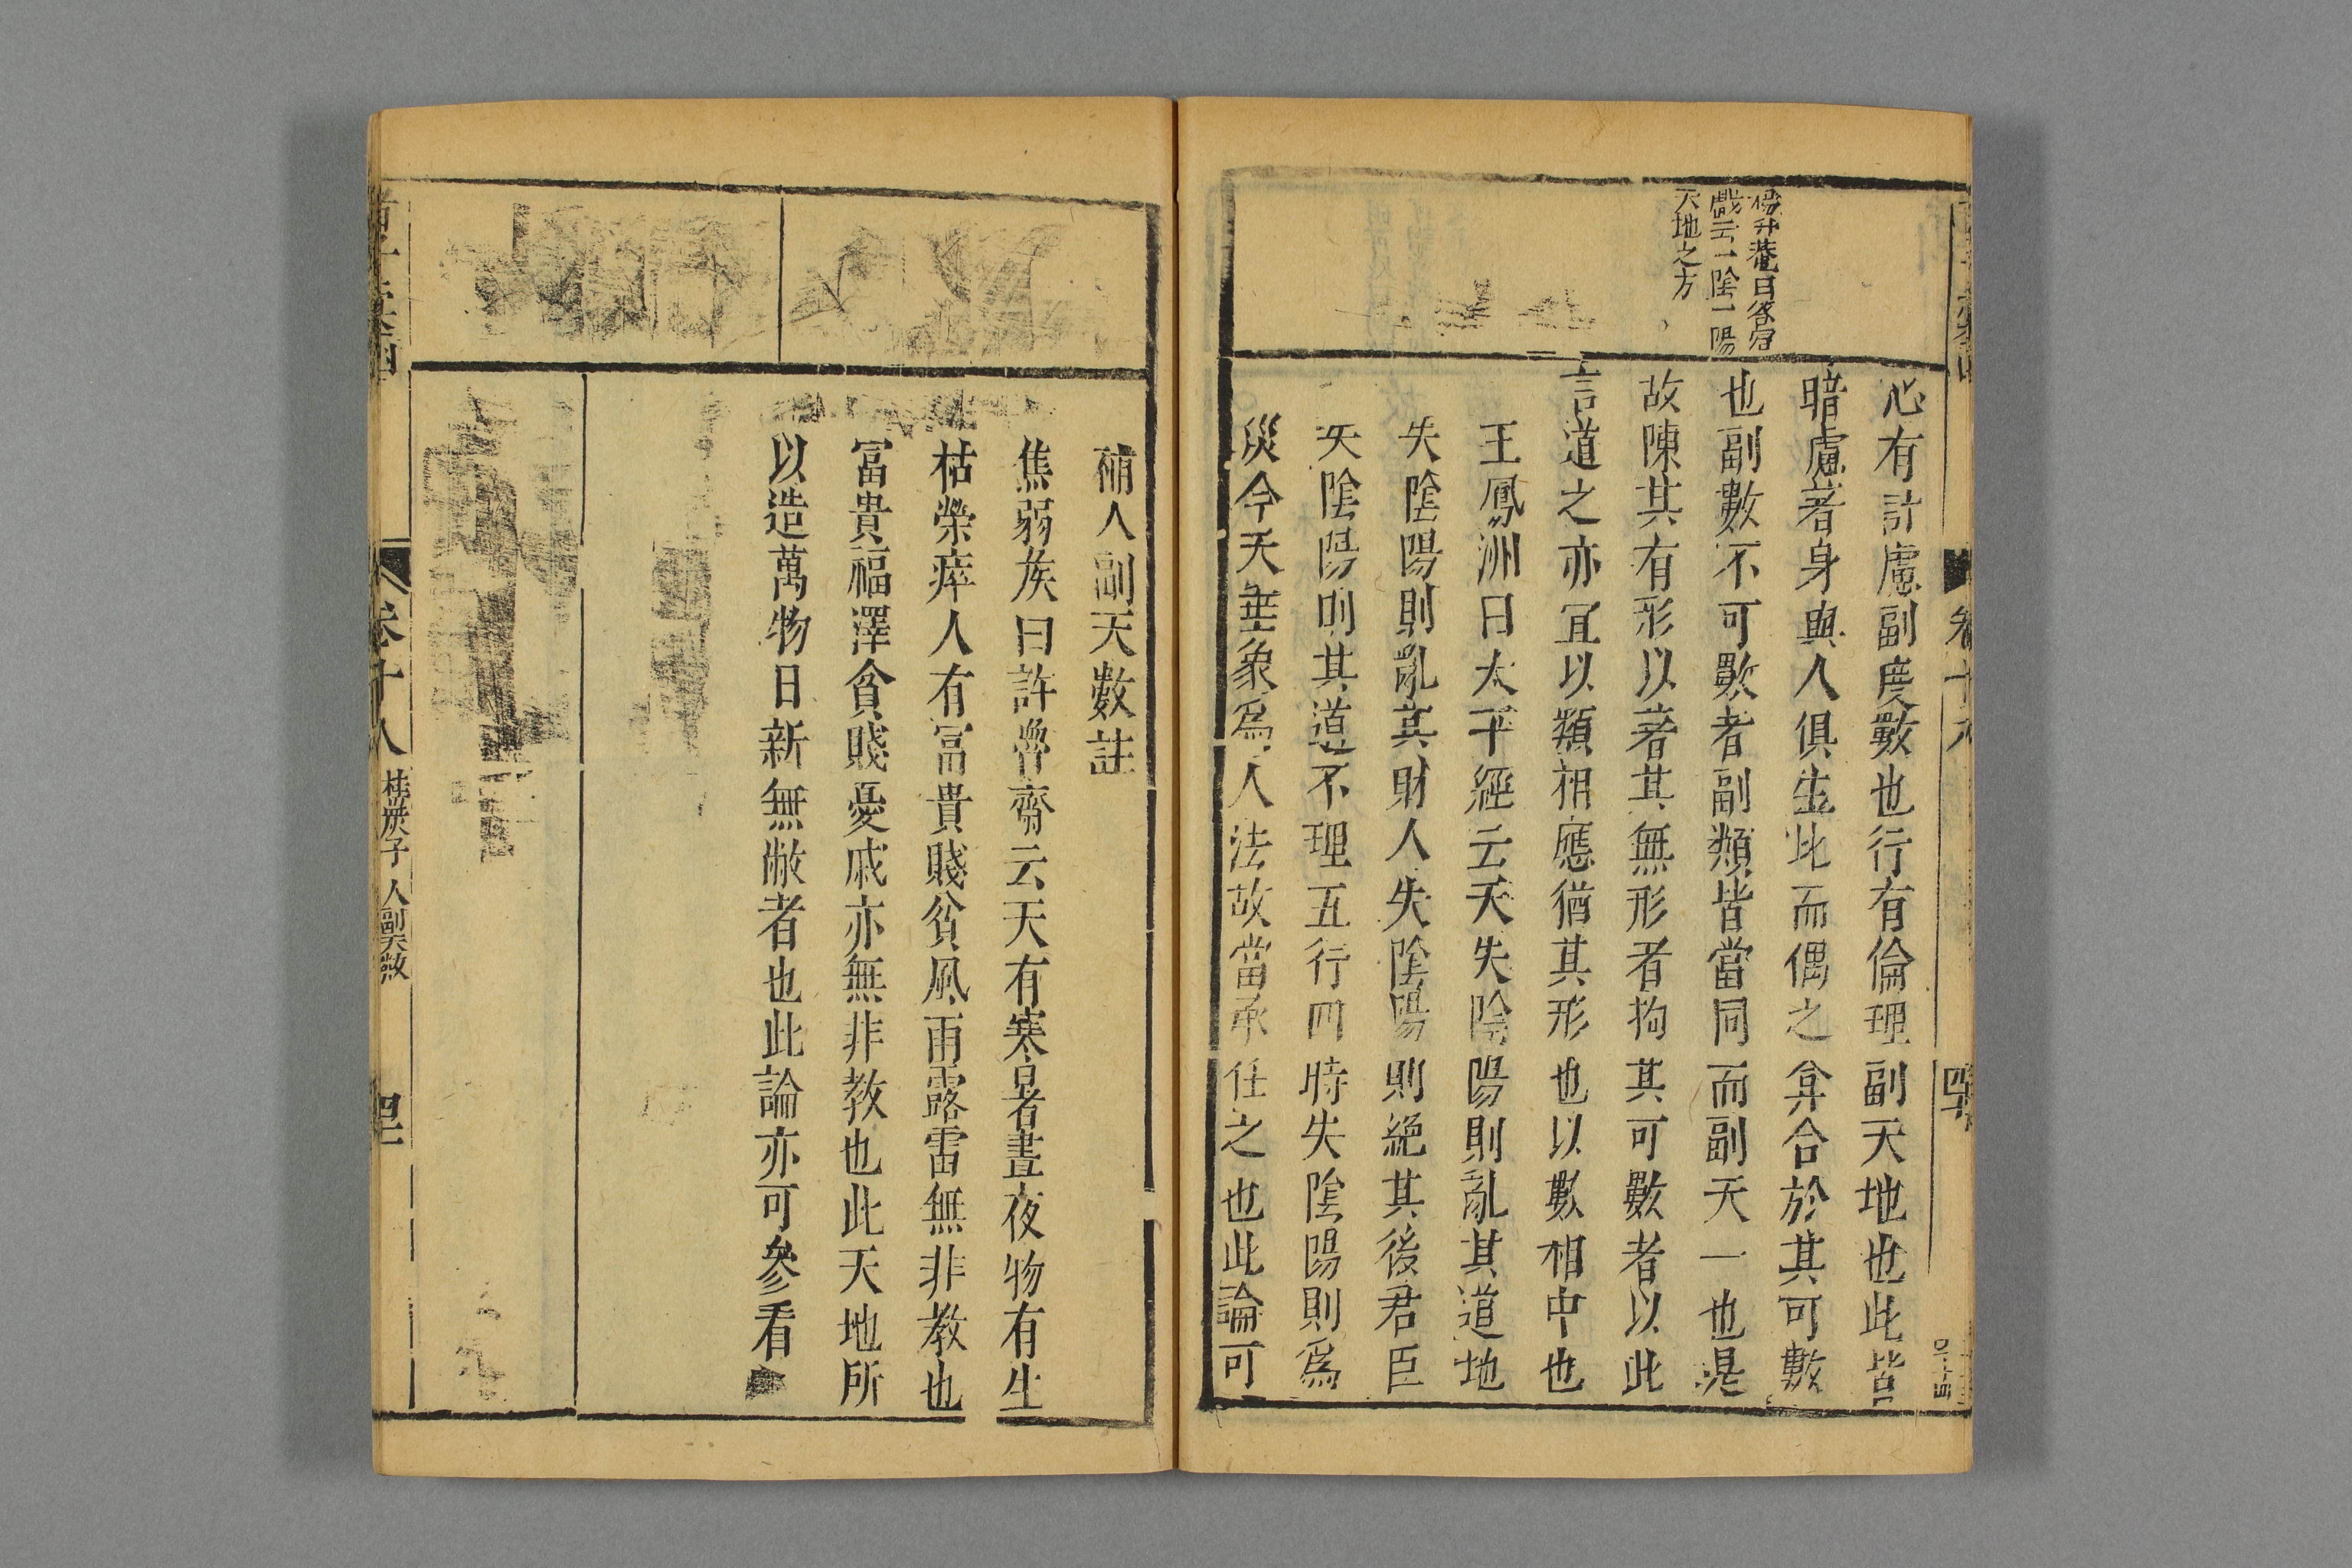 楊升菴曰客窓
戲云一陰一陽
天地之方
心有計慮副度數也行有倫理副天地也此皆
暗膚著身與人俱生比而偶之弇合於其可數
也副數不可數者副類皆當同而副天一也是
故陳其有形以著其無形者拘其可數者以此
言道之亦宜以類相應猶其形也以數相中也
王鳳洲曰太平經云天失陰陽則亂其道地
失陰陽則亂其財人失陰陽則絕其後君臣
失陰陽則其道不理五行四時失陰陽則為
災今天垂象為人法故當承任之也此論可
補人副天數註
焦弱侯曰許魯齋云天有寒暑晝夜物有生
枯榮瘁人有富貴賤貧風雨露雷無非教也
富貴福澤貧賤憂戚亦無非教也此天地所
以造萬物日新無敝者也此論亦可參看
卷十八
桂巖子 人副天數